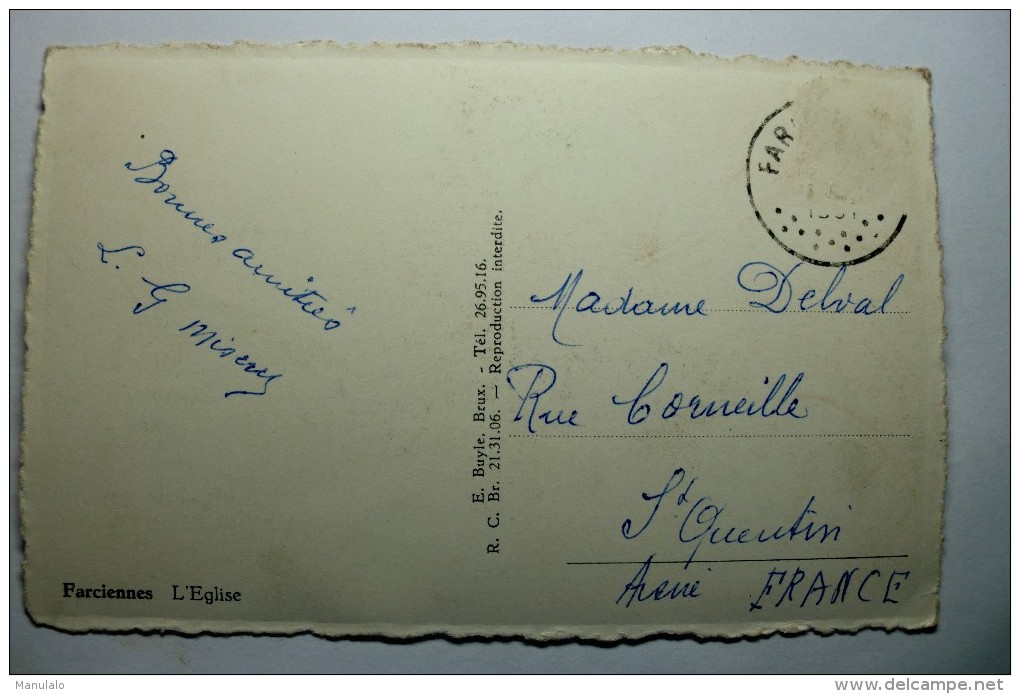 Bonnes amitiés
L. G Misery
Farciennes L'Eglise
E. Buyle, Brux. - Tél. 26.95.16.
R. C. Br. 21.31.06. — Reproduction interdite.
FAR
Madame Delval
Rue Corneille
St Quentin
Aisne FRANCE
Manulalo
www.delcampe.net